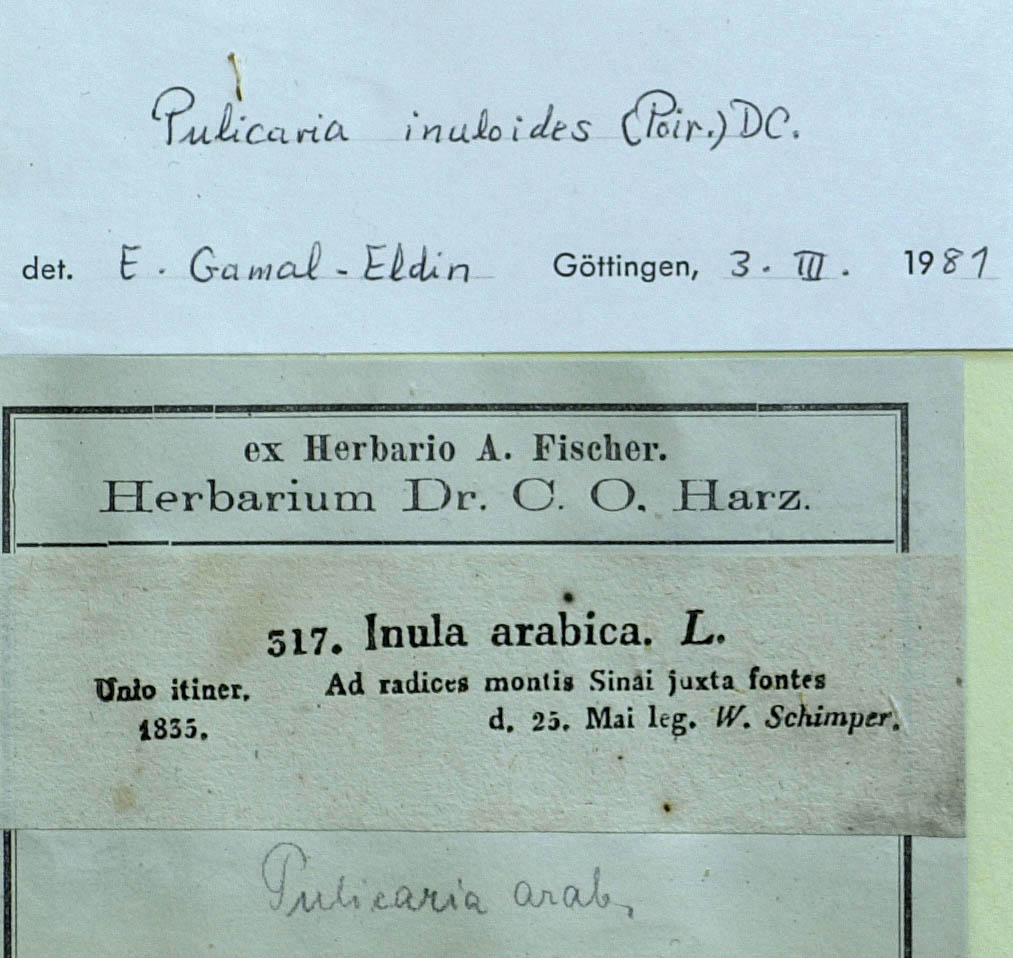 Pulicaria inuloides (Poir.) DC.
det. E. Gamal-Eldin Göttingen, 3. III. 1981
ex Herbario A. Fischer.
Herbarium Dr. C. O. Harz.
317. Inula arabica. L.
Unio itiner. Ad radices montis Sinai juxta fontes
1835. d. 25. Mai leg. W. Schimper.
Pulicaria arab.